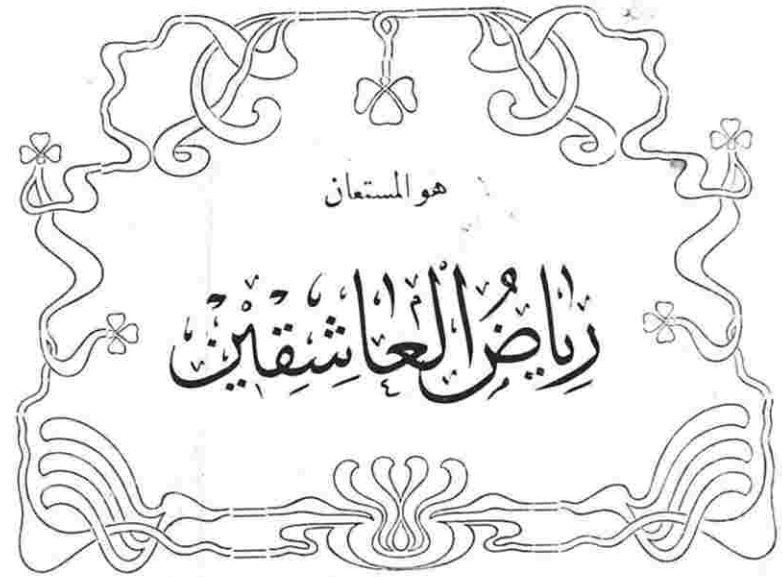 هو المستعان
رِيَاضُ الْعَاشِقِينَ